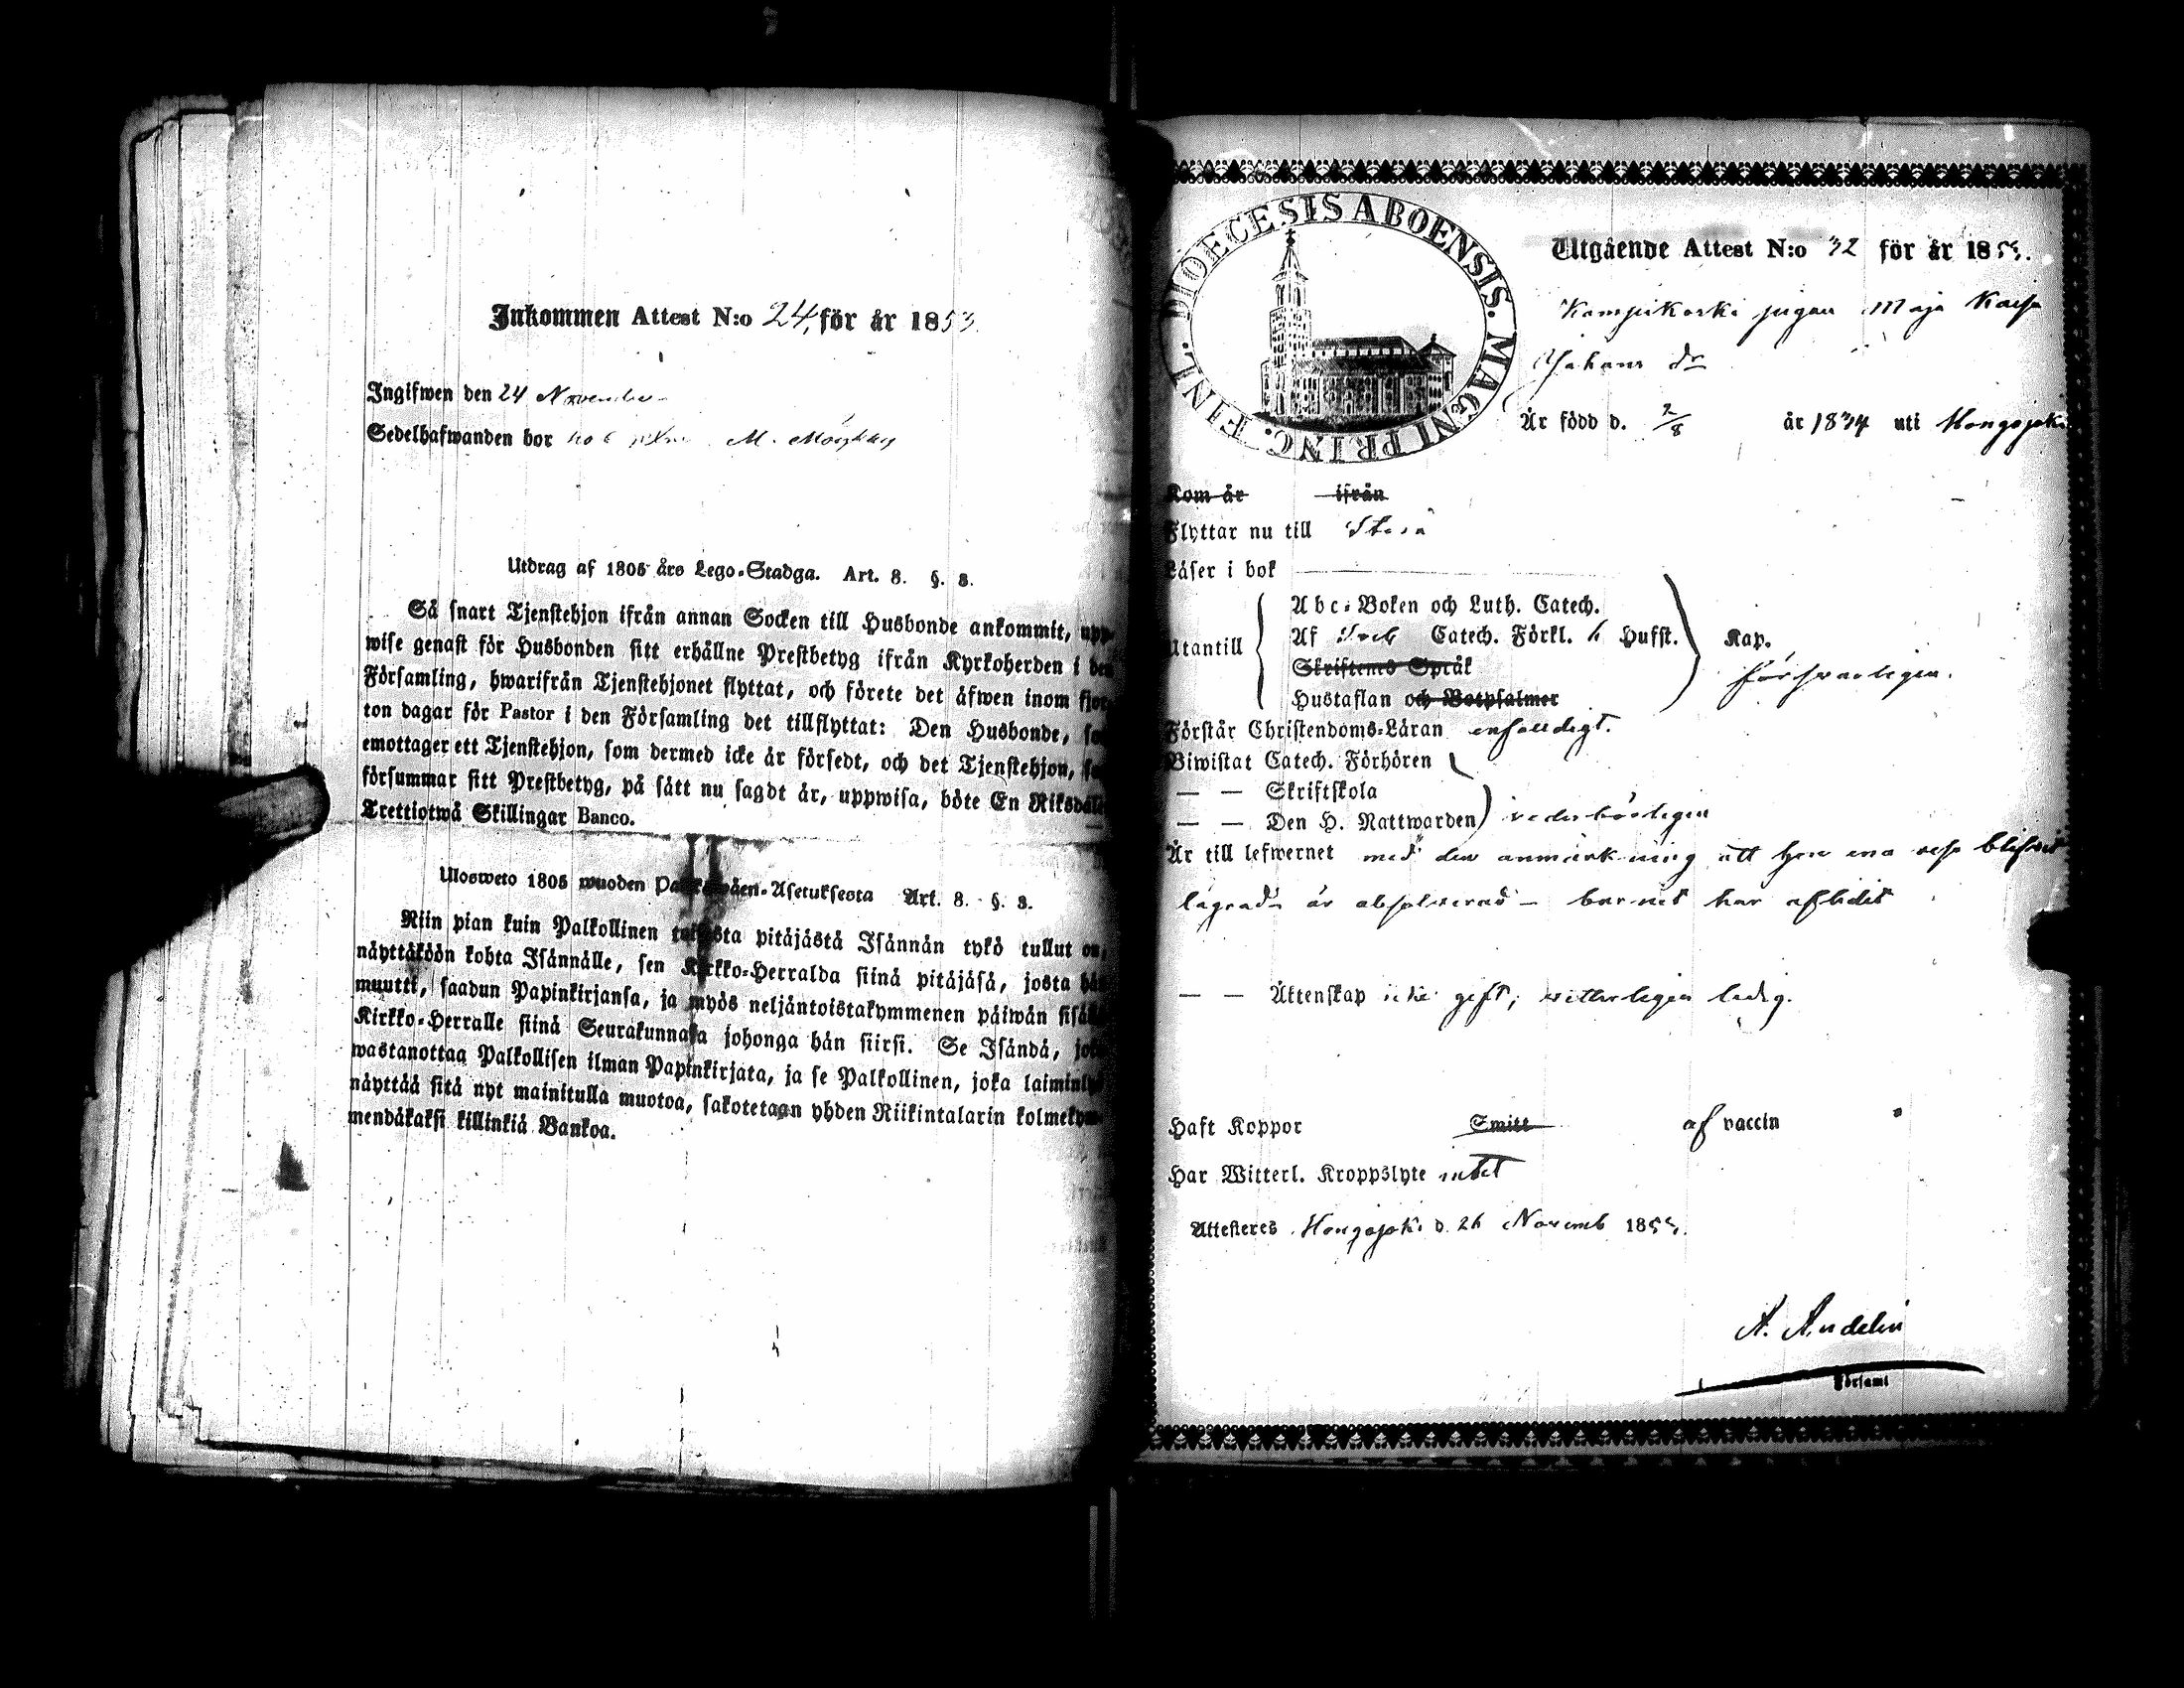 Inkommen Attest N:o 24, för år 1853.
Ingifwen den 24 November
Sedelhafwanden bor hos M.
Utdrag af 1805 års Lego-Stadga. Art. 8. §. 3.
Så snart Tjenstehjon ifrån annan Socken till Husbonde ankommit, upp-
wise genast för Husbonden sitt erhållne Prestbetyg ifrån Kyrkoherden i den
Församling, hwarifrån Tjenstehjonet flyttat, och förete det äfwen inom fjor-
ton dagar för Pastor i den Församling det tillflyttat: Den Husbonde, 
emottager ett Tjenstehjon, som dermed icke är försedt, och det Tjenstehjon, 
försummar sitt Prestbetyg, på sätt nu sagdt är, uppwisa, böte En Riksdaler
Trettiotwå Skillingar Banco.
Ulosweto 1805 wuoden Palkkawäen-Asetuksesta Art. 8. §. 3.
Niin pian kuin Palkollinen toisesta pitäjästä Isännän tykö tullut on,
näyttäköön kohta Isännälle, sen Kirkko-Herralda siinä pitäjäsä, josta hän
muutti, saadun Papinkirjansa, ja myös neljäntoistakymmenen päiwän sisällä
Kirkko-Herralle siinä Seurakunnasa johonga hän siirsi. Se Isändä, joka
wastanottaa Palkollisen ilman Papinkirjata, ja se Palkollinen, joka laiminlyö
näyttää sitä nyt mainitulla muotoa, sakotetaan yhden Riikintalarin kolmekym-
mendäkaksi killinkiä Bankoa.
DIOECESIS ABOENSIS. MAGNI PRINC. FINL.
Utgående Attest N:o 32 för år 1853.
Kampikoski pigan Maja Kaisa
Johans dr
Är född d. 2/8 år 1834 uti Hongojoki
Kom år ifrån
Flyttar nu till
Läser i bok
Utantill
Abc-Boken och Luth. Catech.
Af Catech. Förkl. Husst. Kap.
Skriftens Språk
Hustaflan och Botpsalmer
försvarligen.
Förstår Christendoms-Läran enfaldigt.
Biwistat Catech. Förhören
— — Skriftskola
— — Den H. Nattwarden vederbörligen
Är till lefwernet med den anmärkning att hon ena resa blifvit
lägrad är absolverad – barnet har aflidit
— — Äktenskap icke gift; vitterligen ledig.
Haft Koppor Smitt af vaccin
Har Witterl. Kroppslyte intet
Attesteres Hongojoki d. 26 Novemb 1853.
A. Andelin
Församl